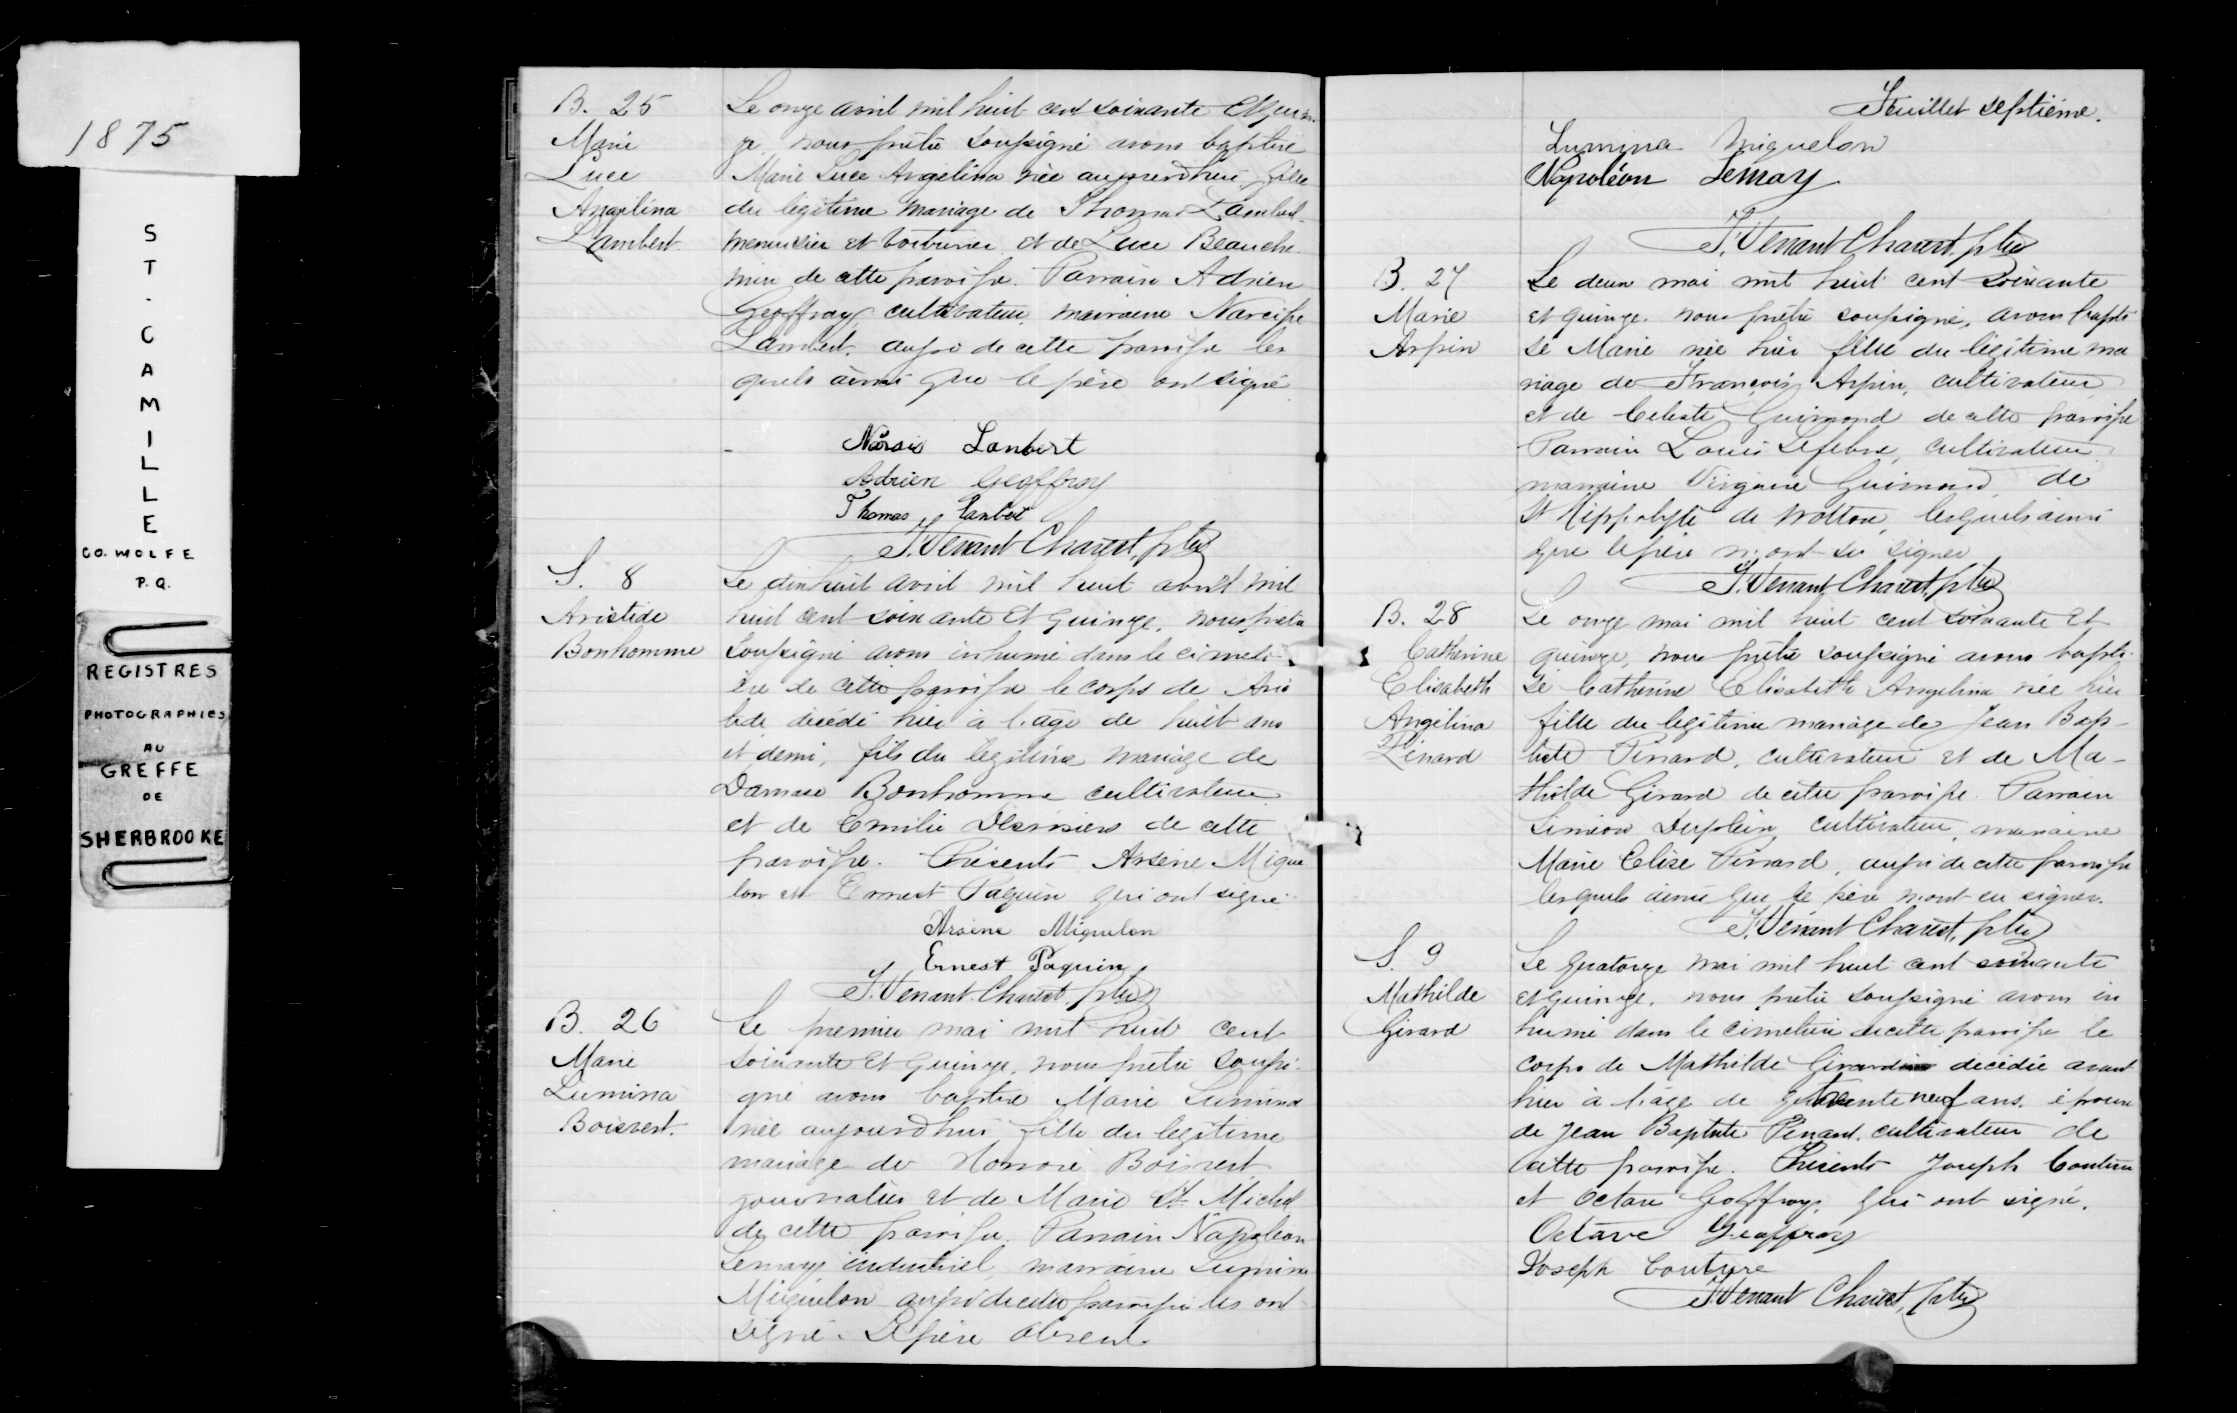 1875
ST. CAMILLE
CO. WOLFE
P.Q.
REGISTRES
PHOTOGRAPHIES
AU
GREFFE
DE
SHERBROOKE
B. 25
Marie
Luce
Angelina
Lambert
Le onze avril mil huit cent soixante et quin
ze, nous prêtre soussigné avons baptisé
Marie Luce Angelina née aujourd'hui fille
du légitime mariage de Thomas Lambert
menuisier et voiturier et de Luce Beauche
min de cette paroisse. Parrain Adrien
Geoffroy, cultivateur, marraine Narcisse
Lambert, aussi de cette paroisse les
quels ainsi que le père ont signé.
Lambert
Adrien Geoffroy
Thomas Lanbert
J. Venant Charest, ptre
S. 8
Aristide
Bonhomme
Le dix huit avril mil huit avril mil
huit cent soixante et quinze, nous prêtre
soussigné avons inhumé dans le cimeti-
ère de cette paroisse le corps de Aris
tide décédé hier à l'age de huit ans
et demi, fils du légitime mariage de
Damase Bonhomme cultivateur
et de Emilie de cette
paroisse. Présents Arsène Mique
lon et Ernest Paquin qui ont signé.
Arsène Miquelon
Ernest Paquin
J. Venant Charest, ptre
B. 26
Marie
Lumina
Boisvert.
Le premier mai mil huit cent
soixante et quinze, nous prêtre soussi-
gné avons baptisé Marie Lumina
née aujourd'hui, fille du légitime
mariage de Honoré Boisvert
journalier et de Marie St. Michel
de cette paroisse. Parrain Napoléon
Lemay industriel, marraine Lumina
Miquelon aussi de cette paroisse les ont
signé. Le père absent.
Feuillet septième.
Lumina Miquelon
Napoléon Lemay
J. Venant Charest, ptre
B. 27
Marie
Arpin
Le deux mai mil huit cent soixante
et quinze, nous prêtre soussigné, avons bapti
sé Marie née hier fille du légitime ma
riage de François Arpin, cultivateur
et de Celeste Guimond de cette paroisse
Parrain Louis Lefebvre, cultivateur
marraine Virginie Guimond, de
St Hippolyte de Wotton, lesquels ainsi
que le père n'ont su signer
J. Venant Charest, ptre
B. 28
Catherine
Elisabeth
Angélina
Pinard
Le onze mai mil huit cent soixante et
quinze, nous prêtre soussigné avons bapti-
sé Catherine Elisabeth Angelina née hier
fille du légitime mariage de Jean Bap-
tiste Pinard, cultivateur et de Ma-
thilde Girard de cette paroisse. Parrain
Siméon Duplein, cultivateur, marraine
Marie Elise Pinard, aussi de cette paroisse
lesquels ainsi que le père n'ont su signer.
J. Venant Charest, ptre
S. 9
Mathilde
Girard
Le quatorze mai mil huit cent soixante
et quinze, nous prêtre soussigné avons in
humé dans le cimetière de cette paroisse le
corps de Mathilde Girard décédée avant
hier à l'age de trente neuf ans, épouse
de Jean Baptiste Pinard, cultivateur de
cette paroisse. Présents Joseph Couture
et Octave Geoffroy, qui ont signé.
Octave Geoffroy
Joseph Couture
J. Venant Charest, ptre